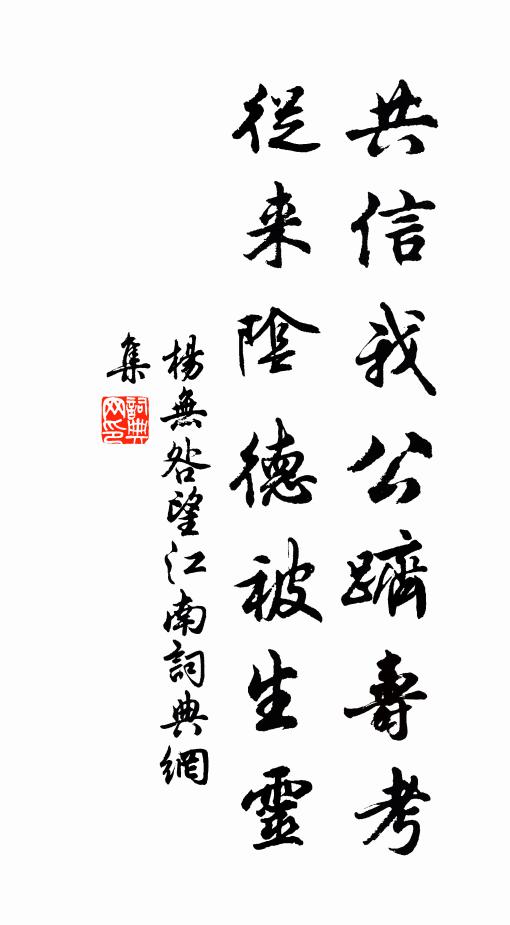 共信我公躋壽考
從来陰德被生靈
楊無咎望江南詞典網
集
詞典网印